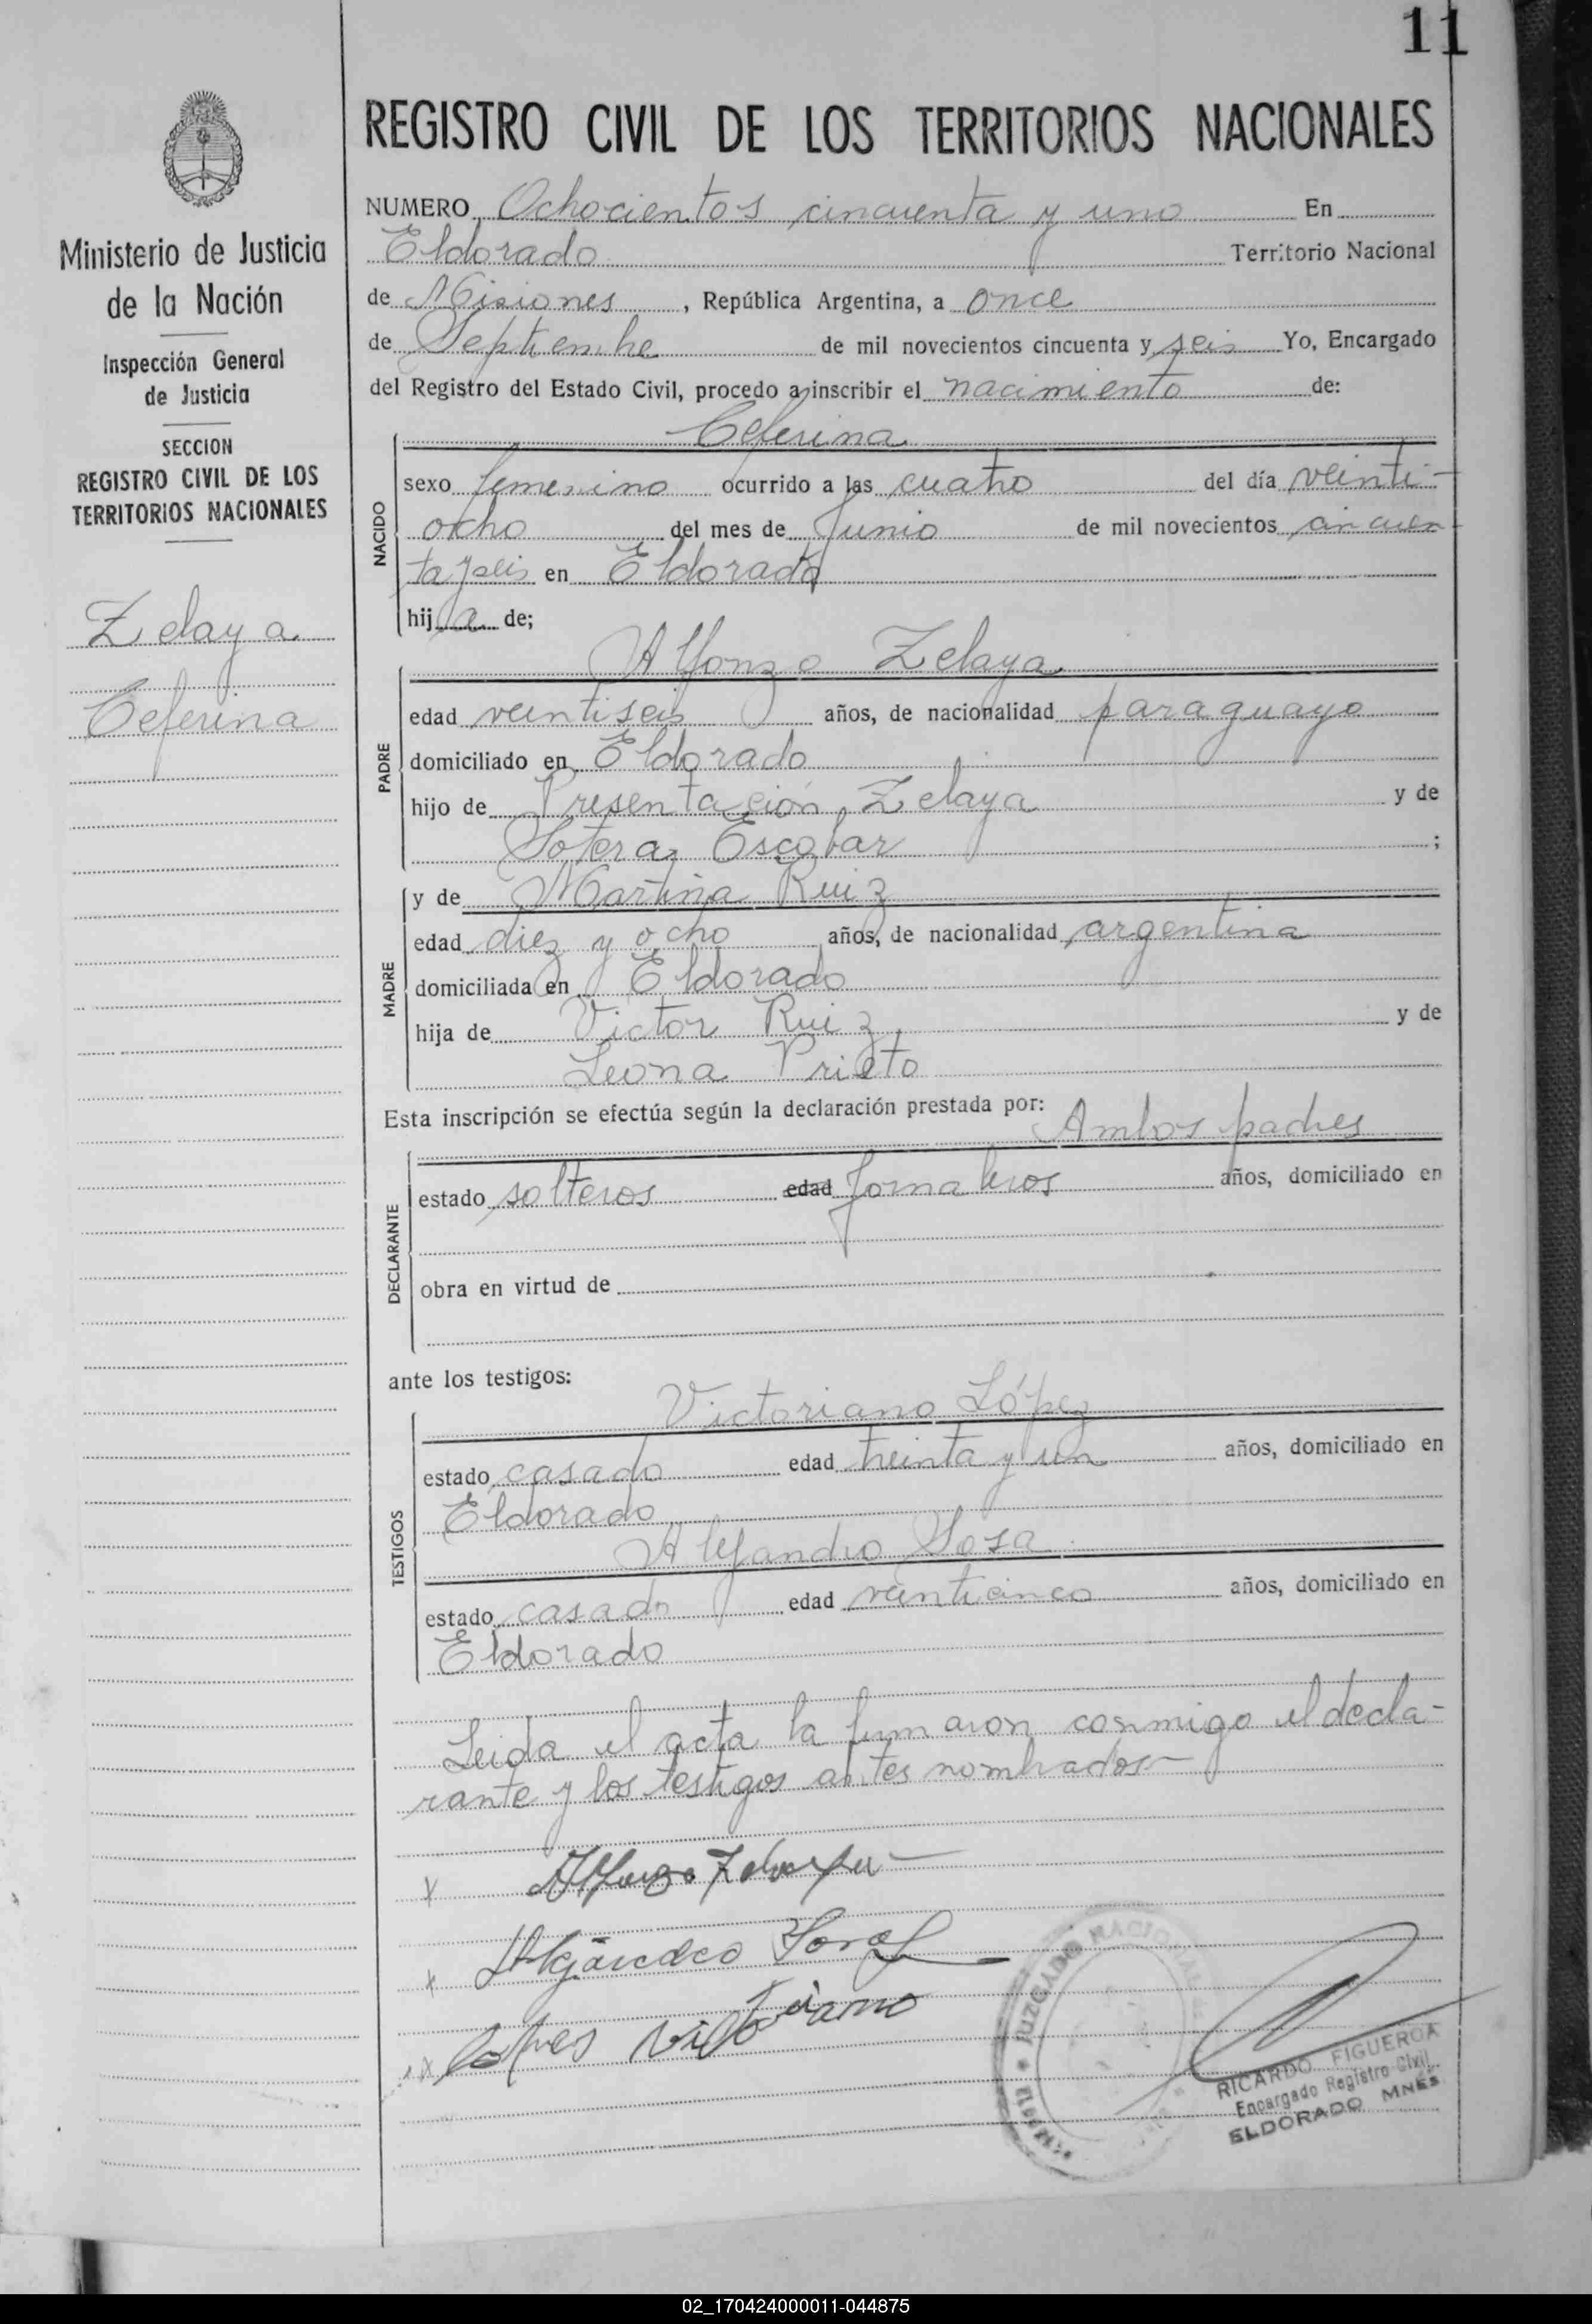 11
REGISTRO CIVIL DE LOS TERRITORIOS NACIONALES
Ministerio de Justicia
de la Nación
Inspección General
de Justicia
SECCION
REGISTRO CIVIL DE LOS
TERRITORIOS NACIONALES
Zelaya
Ceferina
NUMERO Ochocientos cincuenta y uno En
Eldorado Territorio Nacional
de Misiones, República Argentina, a once
de Septiembre de mil novecientos cincuenta y seis Yo, Encargado
del Registro del Estado Civil, procedo a inscribir el nacimiento de:
Ceferina
NACIDO
sexo femenino ocurrido a las cuatro del día veinti-
ocho del mes de Junio de mil novecientos cincuen
ta y seis en Eldorado
hija de;
Alfonzo Zelaya
PADRE
edad veintiseis años, de nacionalidad paraguayo
domiciliado en Eldorado
hijo de Presentación Zelaya y de
Sotera Escobar ;
y de Martina Ruiz
MADRE
edad diez y ocho años, de nacionalidad argentina
domiciliada en Eldorado
hija de Victor Ruiz y de
Leona Prieto
Esta inscripción se efectúa según la declaración prestada por:
Ambos padres
DECLARANTE
estado solteros edad Jornaleros años, domiciliado en
obra en virtud de
ante los testigos:
Victoriano López
TESTIGOS
estado casado edad treinta y un años, domiciliado en
Eldorado
Alejandro Sosa
estado casado edad veinticinco años, domiciliado en
Eldorado
Leida el acta la firmaron conmigo el decla-
rante y los testigos antes nombrados-
x Alfonzo Zelaya
x Alejandro Sosa
x Lopes Victoriano
JUZGADO NACIONAL
RICARDO FIGUEROA
Encargado Registro Civil
ELDORADO MNES
02_170424000011-044875